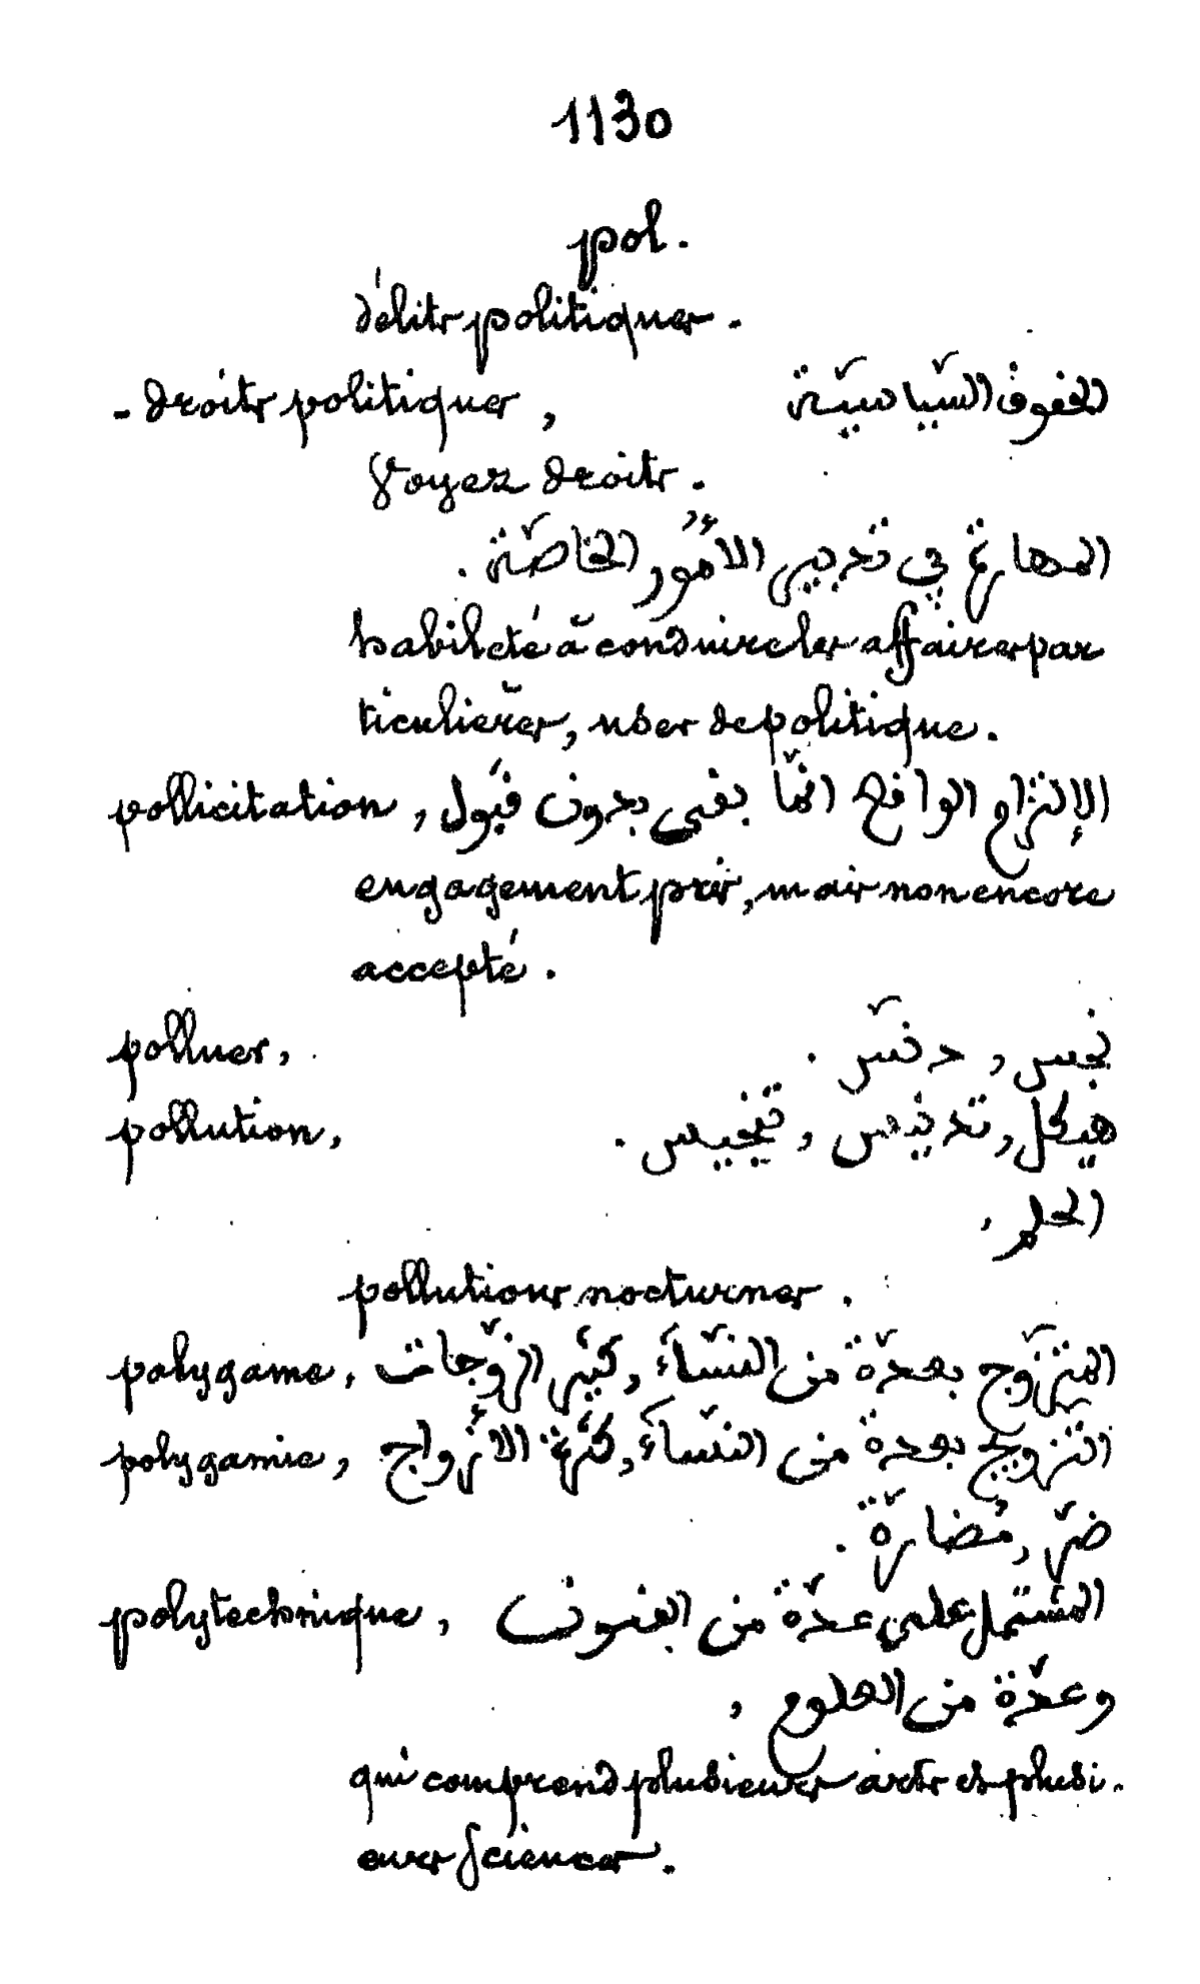 1130
pol.
délits politiques.
- droits politiques, الحقوق السّياسيّة
Voyez droits.
المهارة في تدبير الأمُور الخاصّة.
habileté à conduire les affaires par
ticulières, user de politique.
pollicitation, الإلتزام الواقع انمّا بقى بدون قبُول
engagement pris, mais non encore
accepté.
polluer, نجس, دنّس.
pollution, تدنيس, تنجيس.
الحلم,
pollutions nocturnes.
polygame, المتزّوج بعدّة من النّسآء, كثير الزّوجات
polygamie, التزويج بعدة من النّسآء, كثرة الأزواج
ضرّ, مُضارّة.
polytechnique, المشتمل على عدّة من الفنون
وعدّة من العلوم,
qui comprend plusieurs arts et plusi-
eurs sciences.